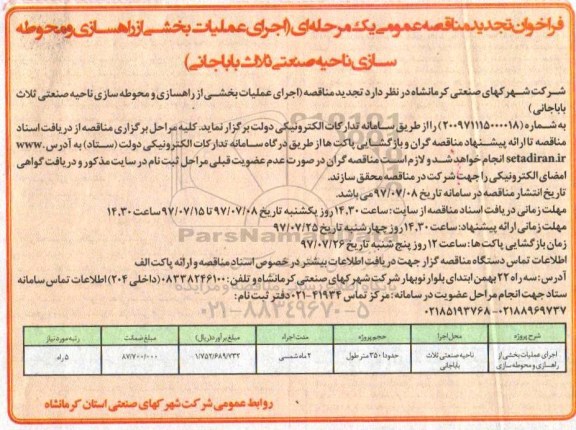 فراخوان تجدید مناقصه عمومی یک مرحله ای (اجرای عملیات بخشی از راهسازی و محوطه
سازی ناحیه صنعتی ثلاث باباجانی)
شرکت شهرکهای صنعتی کرمانشاه در نظر دارد تجدید مناقصه (اجرای عملیات بخشی از راهسازی و محوطه سازی ناحیه صنعتی ثلاث
باباجانی)
به شماره (۲۰۰۹۷۱۱۱۵۰۰۰۰۱۸) را از طریق سامانه تدارکات الکترونیکی دولت برگزار نماید. کلیه مراحل برگزاری مناقصه از دریافت اسناد
مناقصه تا ارائه پیشنهاد مناقصه گران و بازگشایی پاکت ها از طریق درگاه سامانه تدارکات الکترونیکی دولت (ستاد) به آدرس .www
setadiran.ir انجام خواهد شد و لازم است مناقصه گران در صورت عدم عضویت قبلی مراحل ثبت نام در سایت مذکور و دریافت گواهی
امضای الکترونیکی را جهت شرکت در مناقصه محقق سازند.
تاریخ انتشار مناقصه در سامانه تاریخ ۹۷/۰۷/۰۸ می باشد.
مهلت زمانی دریافت اسناد مناقصه از سایت: ساعت ۱۴.۳۰ روز یکشنبه تاریخ ۹۷/۰۷/۰۸ تا ۹۷/۰۷/۱۵ ساعت ۱۴.۳۰
مهلت زمانی ارائه پیشنهاد: ساعت ۱۴.۳۰ روز چهارشنبه تاریخ ۹۷/۰۷/۲۵
زمان بازگشایی پاکت ها: ساعت ۱۲ روز پنج شنبه تاریخ ۹۷/۰۷/۲۶
اطلاعات تماس دستگاه مناقصه گزار جهت دریافت اطلاعات بیشتر در خصوص اسناد مناقصه و ارائه پاکت الف
آدرس: سه راه ۲۲ بهمن ابتدای بلوار نوبهار شرکت شهرکهای صنعتی کرمانشاه و تلفن: ۰۸۳۳۸۲۴۶۱۰۰ (داخلی ۲۰۴) اطلاعات تماس سامانه
ستاد جهت انجام مراحل عضویت در سامانه: مرکز تماس ۴۱۹۳۴-۰۲۱ دفتر ثبت نام:
۰۲۱۸۸۹۶۹۷۳۷-۰۲۱۸۵۱۹۳۷۶۸
ParsNamadData
۰۲۱-۸۸۳۴۹۶۷۰-۵
شرح پروژه محل اجرا حجم پروژه مدت اجراء مبلغ برآورد (ریال) مبلغ ضمانت رتبه مورد نیاز
اجرای عملیات بخشی از راهسازی و محوطه سازی ناحیه صنعتی ثلاث باباجانی حدودا ۳۵۰ متر طول ۲ ماه شمسی ۱/۷۵۲/۶۸۹/۷۳۲ ۸۷/۷۰۰/۰۰۰ ۵ راه
روابط عمومی شرکت شهرکهای صنعتی استان کرمانشاه